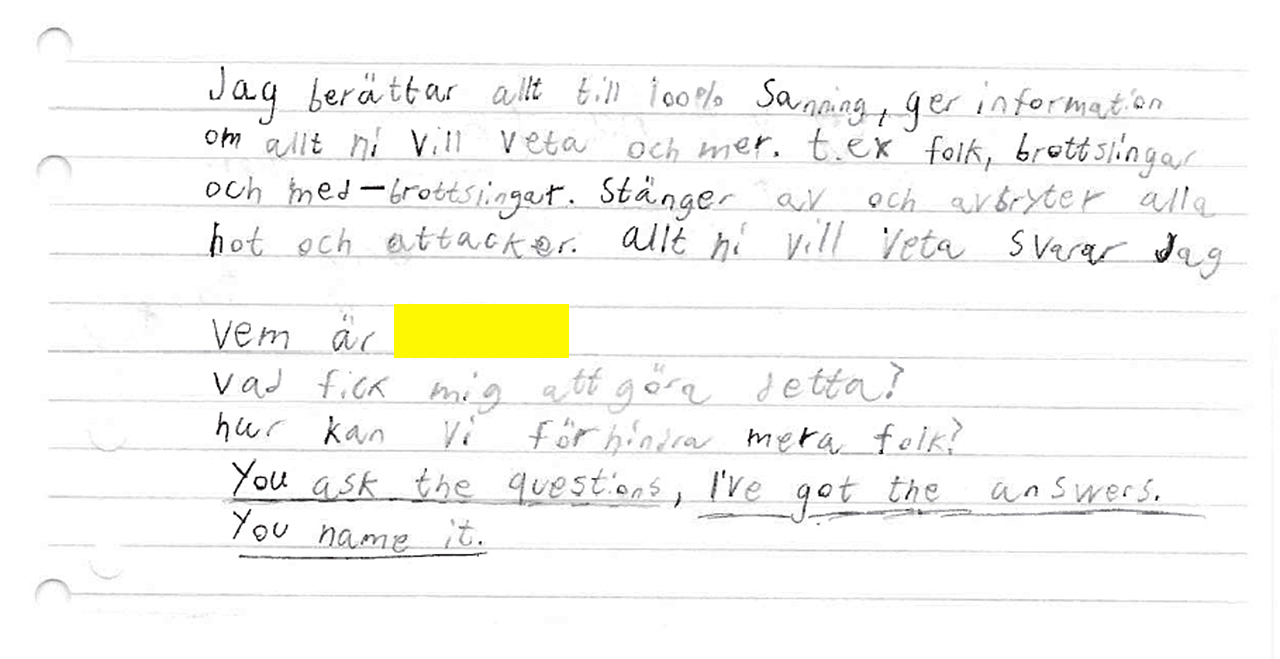 Jag berättar allt till 100% Sanning, ger information
om allt ni vill veta och mer. t.ex folk, brottslingar
och med-brottslingar. Stänger av och avbryter alla
hot och attacker. allt ni vill veta svarar Jag
Vem är
Vad fick mig att göra detta?
hur kan vi förhindra mera folk?
You ask the questions, I've got the answers.
You name it.